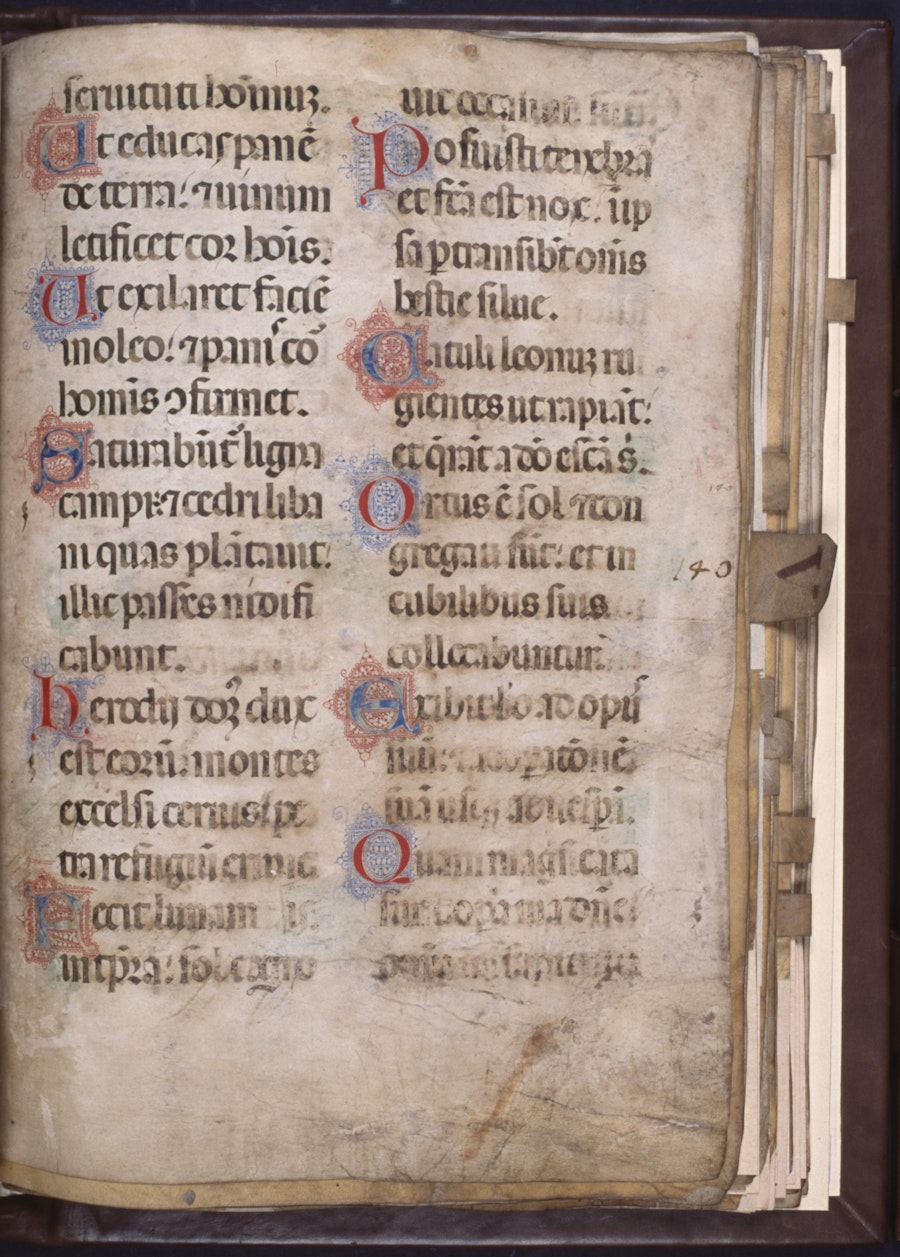 seruituti hoīmuȝ.
Ut educas panē
de terra: ⁊ uinum
letificet cor hoīs.
Ut exilaret faciē
in oleo: ⁊ panis coꝛ
homīs ↄfirmet.
Saturabūt̄ ligna
campi: ⁊ cedri liba
ni quas plātauit:
illic passēs nidifi
cabunt.
herodij doꝝ dux
est eorū: montes
excelsi ceruis: pe
tra refugiū ermac
Fecit lunam
in tp̄ra: sol cogno
uit occasum suū.
Posuisti tenebra
et fc̄a est nox: in ip
sa ꝑtransibt̄ om̄s
bestie silue.
Catuli leonuȝ ru
gientes ut rapiāt:
et q̄rāt a do escās.
Ortus ē sol ⁊ con
gregati sūt: et in
cubilibus suis
collocabuntur.
Exibit ho ad opꝰ
suū: ⁊ ad oꝑatōnē
suā usqȝ ad uesꝑā.
Quam magn̄ficata
sunt opa tua dn̄e:
140